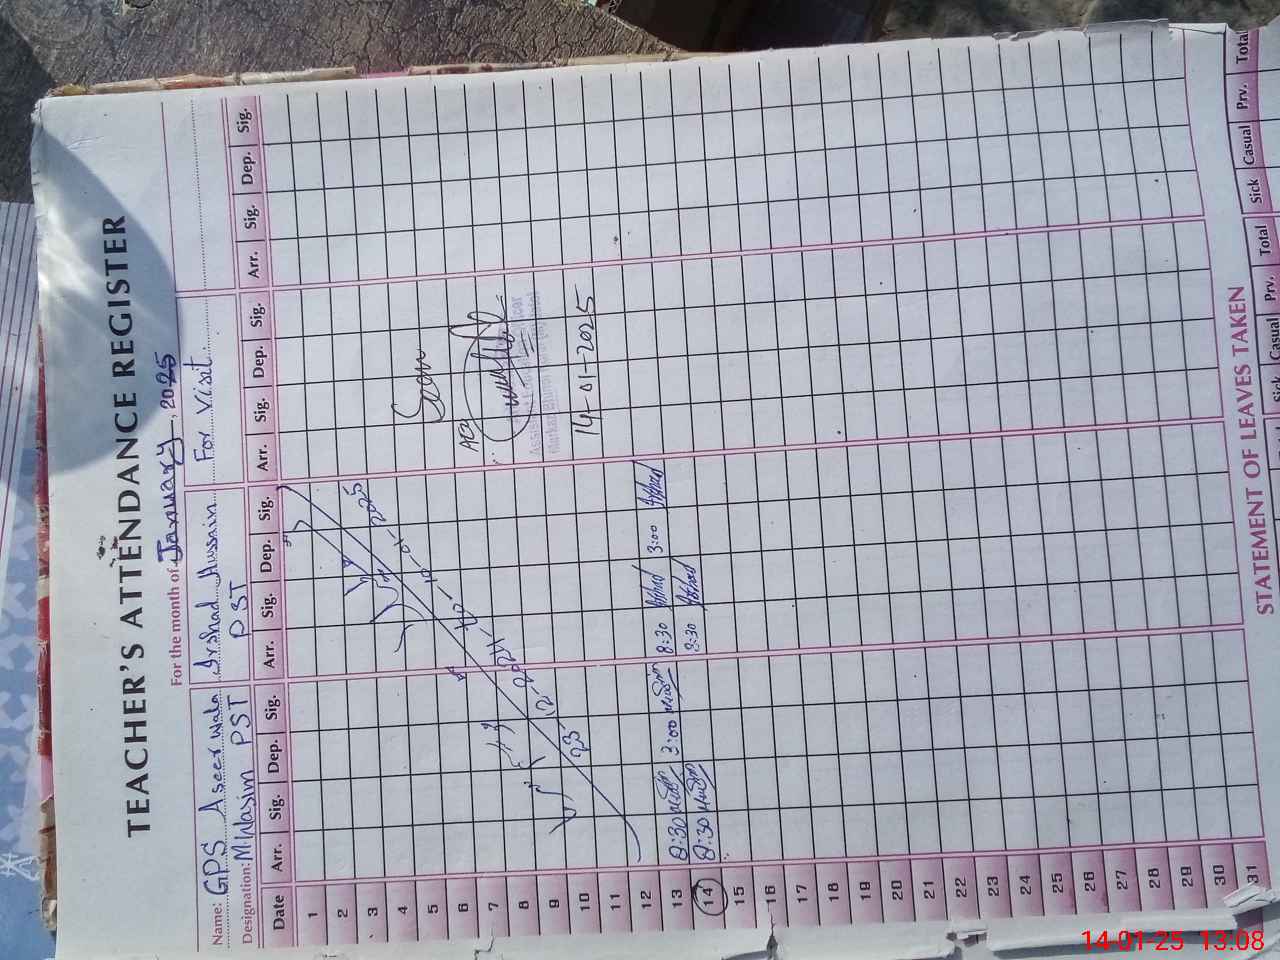 TEACHER'S ATTENDANCE REGISTER
For the month of January, 2025
Name: GPS Aseer wala Arshad Hussain For Visit
Designation: M. Wasim PST PST
Date Arr. Sig. Dep. Sig. Arr. Sig. Dep. Sig. Arr. Sig. Dep. Sig. Arr. Sig. Dep. Sig.
1
2
3
4
5 Seen
6
7 AEO
8
9
10 14-01-2025
23-12-2024 10-01-2025
11
12
13 8:30 3:00 8:30 Arshad 3:00 Arshad
14 8:30 8:30 Arshad
15
16
17
18
19
20
21
22
23
24
25
26
27
28
29
30
31
STATEMENT OF LEAVES TAKEN
Sick Casual Prv. Total Sick Casual Prv. Total
14-01-25 13:08